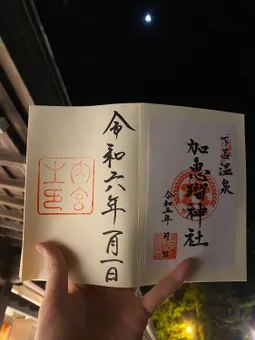 下呂温泉
加恵瑠神社
令和五年 月 日
令和六年一月一日
内宮之印